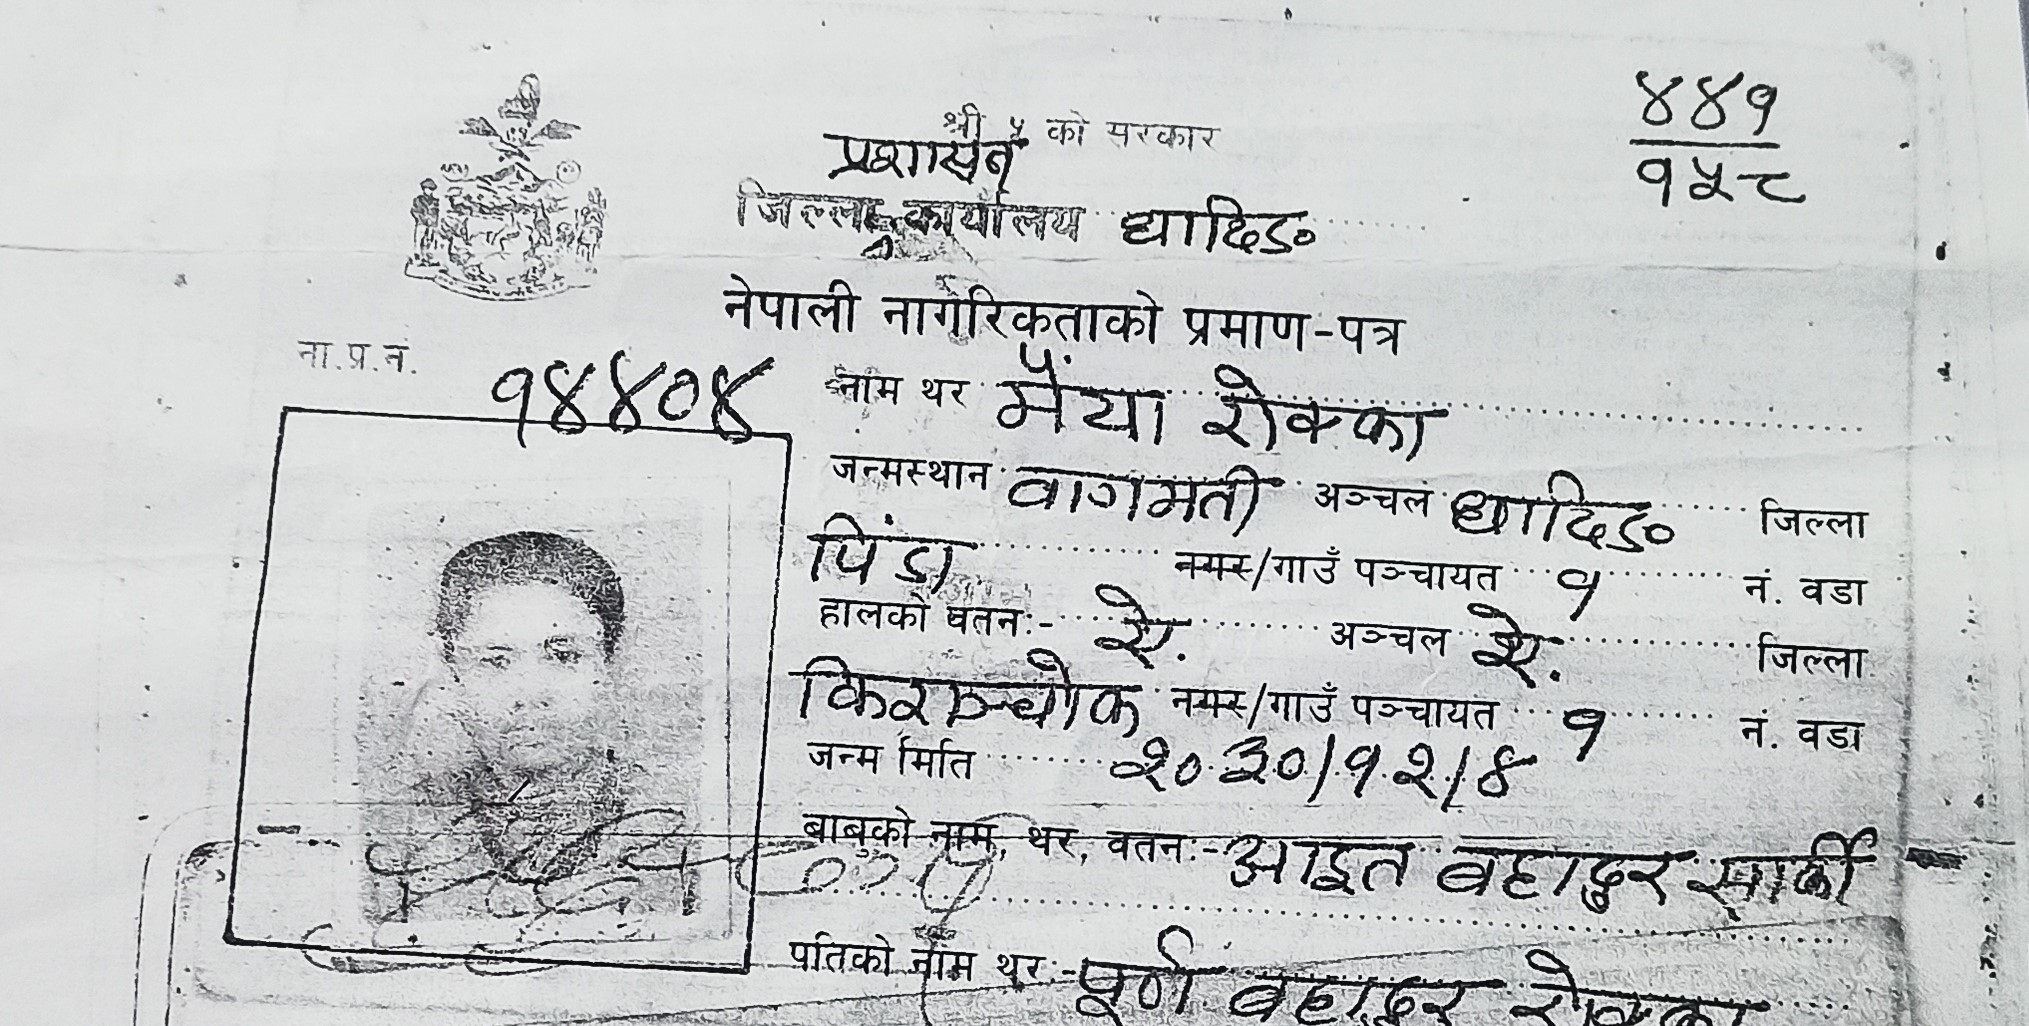 श्री ५ को सरकार
४४१
१५८
प्रशासन
जिल्ला कार्यालय धादिङ
नेपाली नागरिकताको प्रमाण-पत्र
ना.प्र.नं. १४४०४
नाम थर मैंया रोक्का
जन्मस्थान वागमती अञ्चल धादिङ जिल्ला
पिंडा नगर/गाउँ पञ्चायत १ नं. वडा
हालको वतन:- ऐ. अञ्चल ऐ. जिल्ला
किरान्चोक नगर/गाउँ पञ्चायत १ नं. वडा
जन्म मिति २०३०/१२/४
बाबुको नाम, थर, वतन:- आइत वहादुर सार्की
पतिको नाम थर:- पूर्ण वहादुर रोक्का